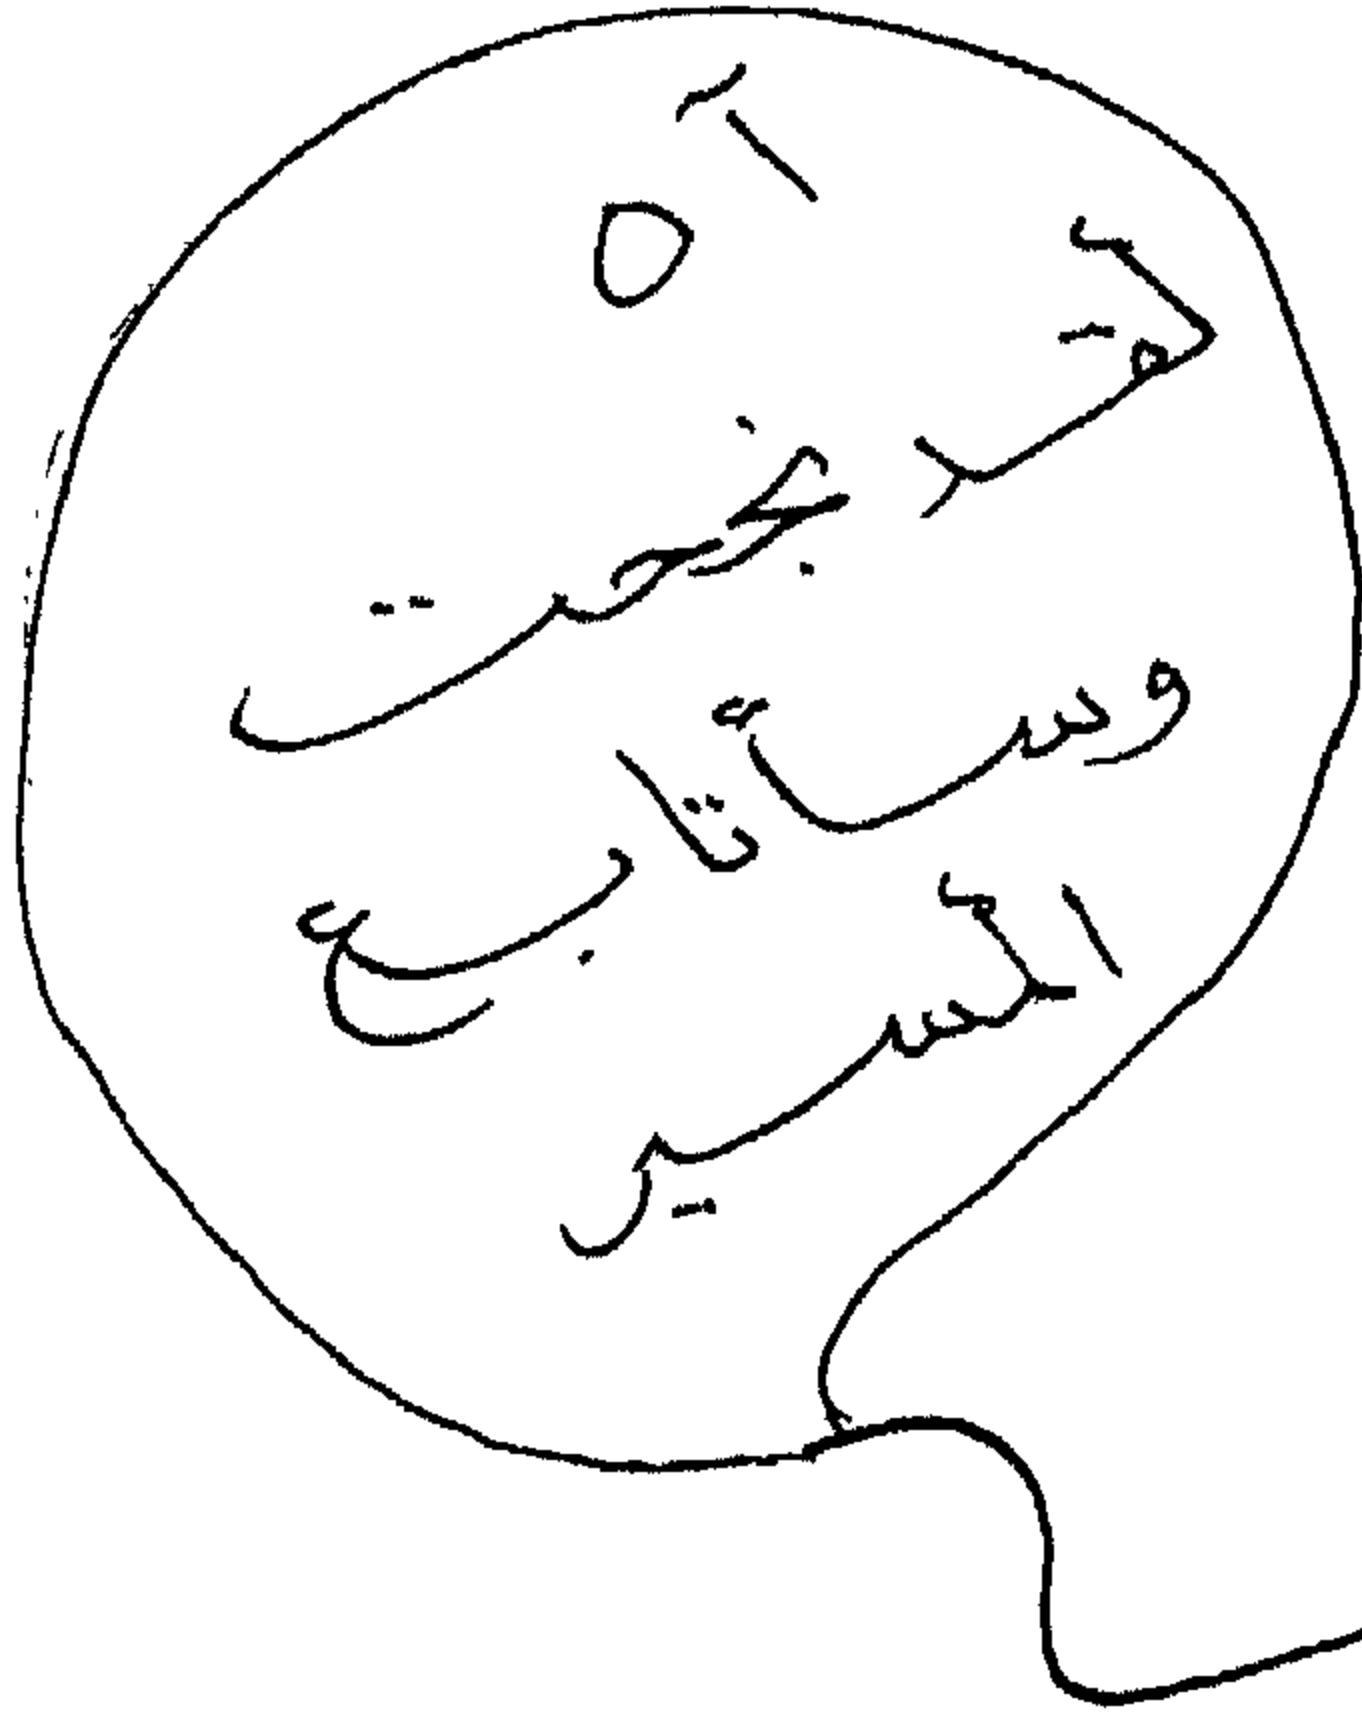 آه
لقد نجحت
وسأتابع
المسير